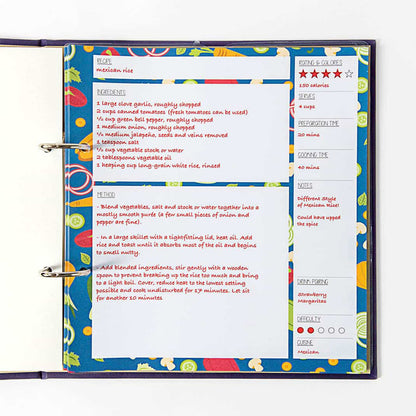 RECIPE
mexican rice
INGREDIENTS
1 large clove garlic, roughly chopped
2 cups canned tomatoes (fresh tomatoes can be used)
½ cup green bell pepper, roughly chopped
1 medium onion, roughly chopped
½ medium jalapeño, seeds and veins removed
1 teaspoon salt
½ cup vegetable stock or water
2 tablespoons vegetable oil
1 heaping cup long-grain white rice, rinsed
METHOD
- Blend vegetables, salt and stock or water together into a
mostly smooth purée (a few small pieces of onion and
pepper are fine).
- In a large skillet with a tightfitting lid, heat oil. Add
rice and toast until it absorbs most of the oil and begins
to smell nutty.
- Add blended ingredients, stir gently with a wooden
spoon to prevent breaking up the rice too much and bring
to a light boil. Cover, reduce heat to the lowest setting
possible and cook undisturbed for 17 minutes. Let sit
for another 10 minutes.
RATING & CALORIES
150 calories
SERVES
4 cups
PREPARATION TIME
20 mins
COOKING TIME
40 mins
NOTES
Different Style
of Mexican Rice!
Could have upped
the spice
DRINK PAIRING
Strawberry
Margaritas
DIFFICULTY
CUISINE
Mexican